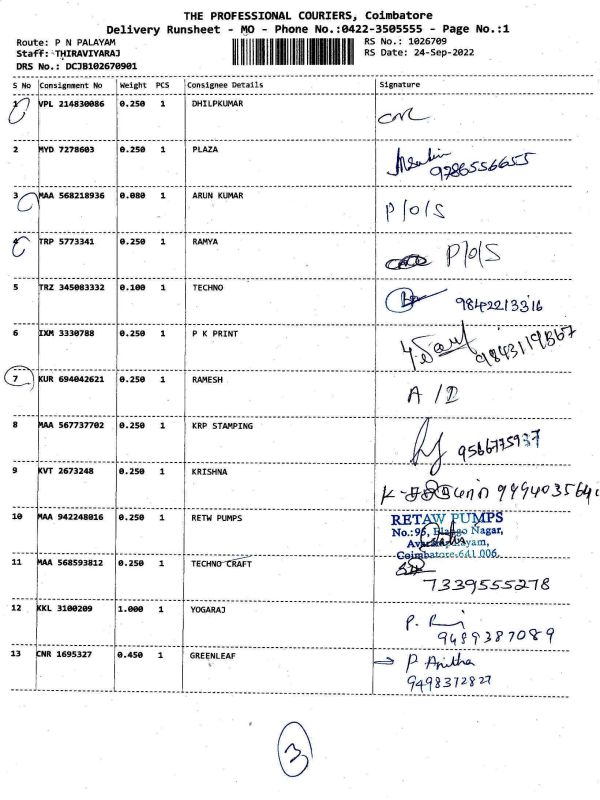 THE PROFESSIONAL COURIERS, Coimbatore
Delivery Runsheet - MO - Phone No.:0422-3505555 - Page No.:1
Route: P N PALAYAM
Staff: THIRAVIYARAJ
DRS No.: DCJB102670901
RS No.: 1026709
RS Date: 24-Sep-2022
S No Consignment No Weight PCS Consignee Details Signature
1 VPL 214830086 0.250 1 DHILPKUMAR
2 MYD 7278603 0.250 1 PLAZA 9786556655
3 MAA 568218936 0.080 1 ARUN KUMAR P/O/S
4 TRP 5773341 0.250 1 RAMYA P/O/S
5 TRZ 345083332 0.100 1 TECHNO 9842213316
6 IXM 3330788 0.250 1 P K PRINT
7 KUR 694042621 0.250 1 RAMESH
8 MAA 567737702 0.250 1 KRP STAMPING
9 KVT 2673248 0.250 1 KRISHNA
10 MAA 942248016 0.250 1 RETW PUMPS RETAW PUMPS
Nagar,
Coimbatore-641 006.
11 MAA 568593812 0.250 1 TECHNO CRAFT 7339555278
12 KKL 3100209 1.000 1 YOGARAJ
9489387089
13 CNR 1695327 0.450 1 GREENLEAF P Anitha
9498372827
3